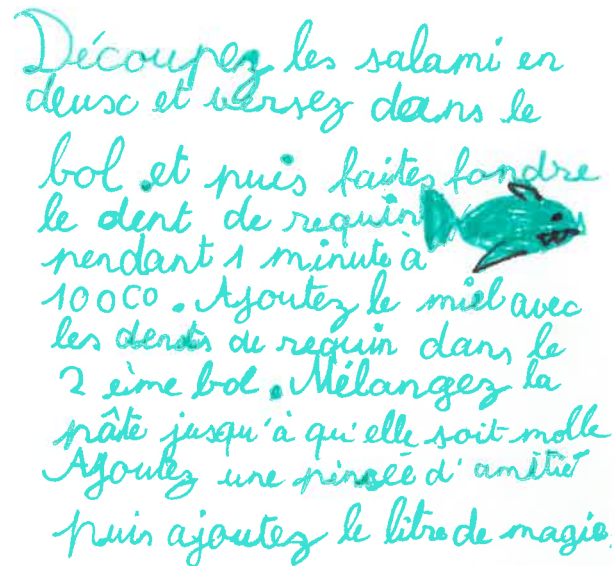 Découpez les salami en
deusc et versez dans le
bol et puis faites fondre
le dent de requin
pendant 1 minute à
100C°. Ajoutez le miel avec
les dents de requin dans le
2 eime bol. Mélangez la
pâte jusqu'à qu'elle soit molle
Ajoutez une pinsée d'amitié
puis ajoutez le litre de magie.